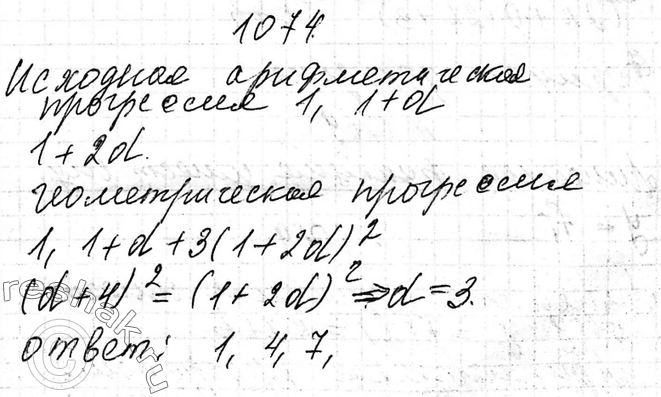 1074
Исходная арифметическая
прогрессия 1, 1+d
1+2d.
геометрическая прогрессия
1, 1+d+3(1+2d)²
(d+4)² = (1+2d)² ⇒ d=3.
ответ: 1, 4, 7,
reshak.ru